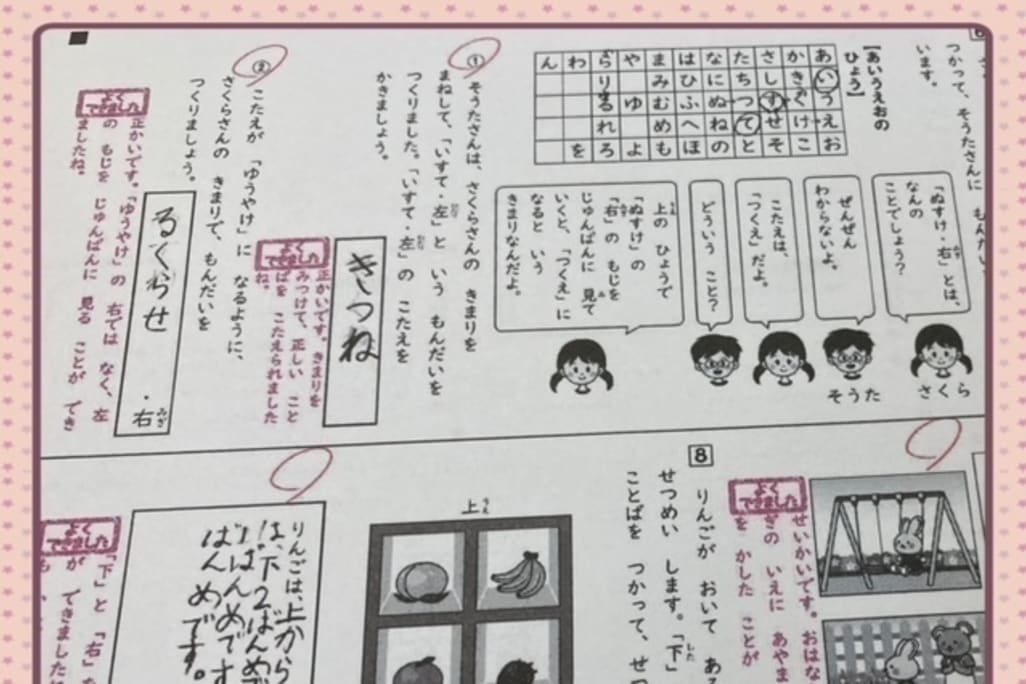 つかって、そうたさんに もんだい
います。
【あいうえおの
ひょう】
あいうえお
かきくけこ
さしすせそ
たちつてと
なにぬねの
はひふへほ
まみむめも
や ゆ よ
らりるれろ
わ を
ん
「ぬすけ・右」とは、
なんの
ことでしょう?
さくら
ぜんぜん
わからないよ。
そうた
こたえは、
「つくえ」だよ。
どういう こと?
上の ひょうで
「ぬすけ」の
「右」の もじを
じゅんばんに 見て
いくと、「つくえ」に
なると いう
きまりなんだよ。
① そうたさんは、さくらさんの きまりを
まねして、「いすて・左」と いう もんだいを
つくりました。「いすて・左」の こたえを
かきましょう。
きつね
よく
できました
正かいです。きまりを
みつけて、正しい こと
ばを こたえられました
ね。
② こたえが 「ゆうやけ」に なるように、
さくらさんの きまりで、もんだいを
つくりましょう。
るくらせ ・右
みぎ
よく
できました
正かいです。「ゆうやけ」の 右では なく、左
の もじを じゅんばんに 見る ことが でき
ましたね。
よく
できました
せいかいです。おはな
ぎの いえに あやま
を かした ことが
8
りんごが おいて あ
せつめい します。「下」
ことばを つかって、せ
上
うえ
りんごは、上から
は、下2ばんめ
ばんめです
ばんめです。
よく
できました
「下」と 「右」
が できました